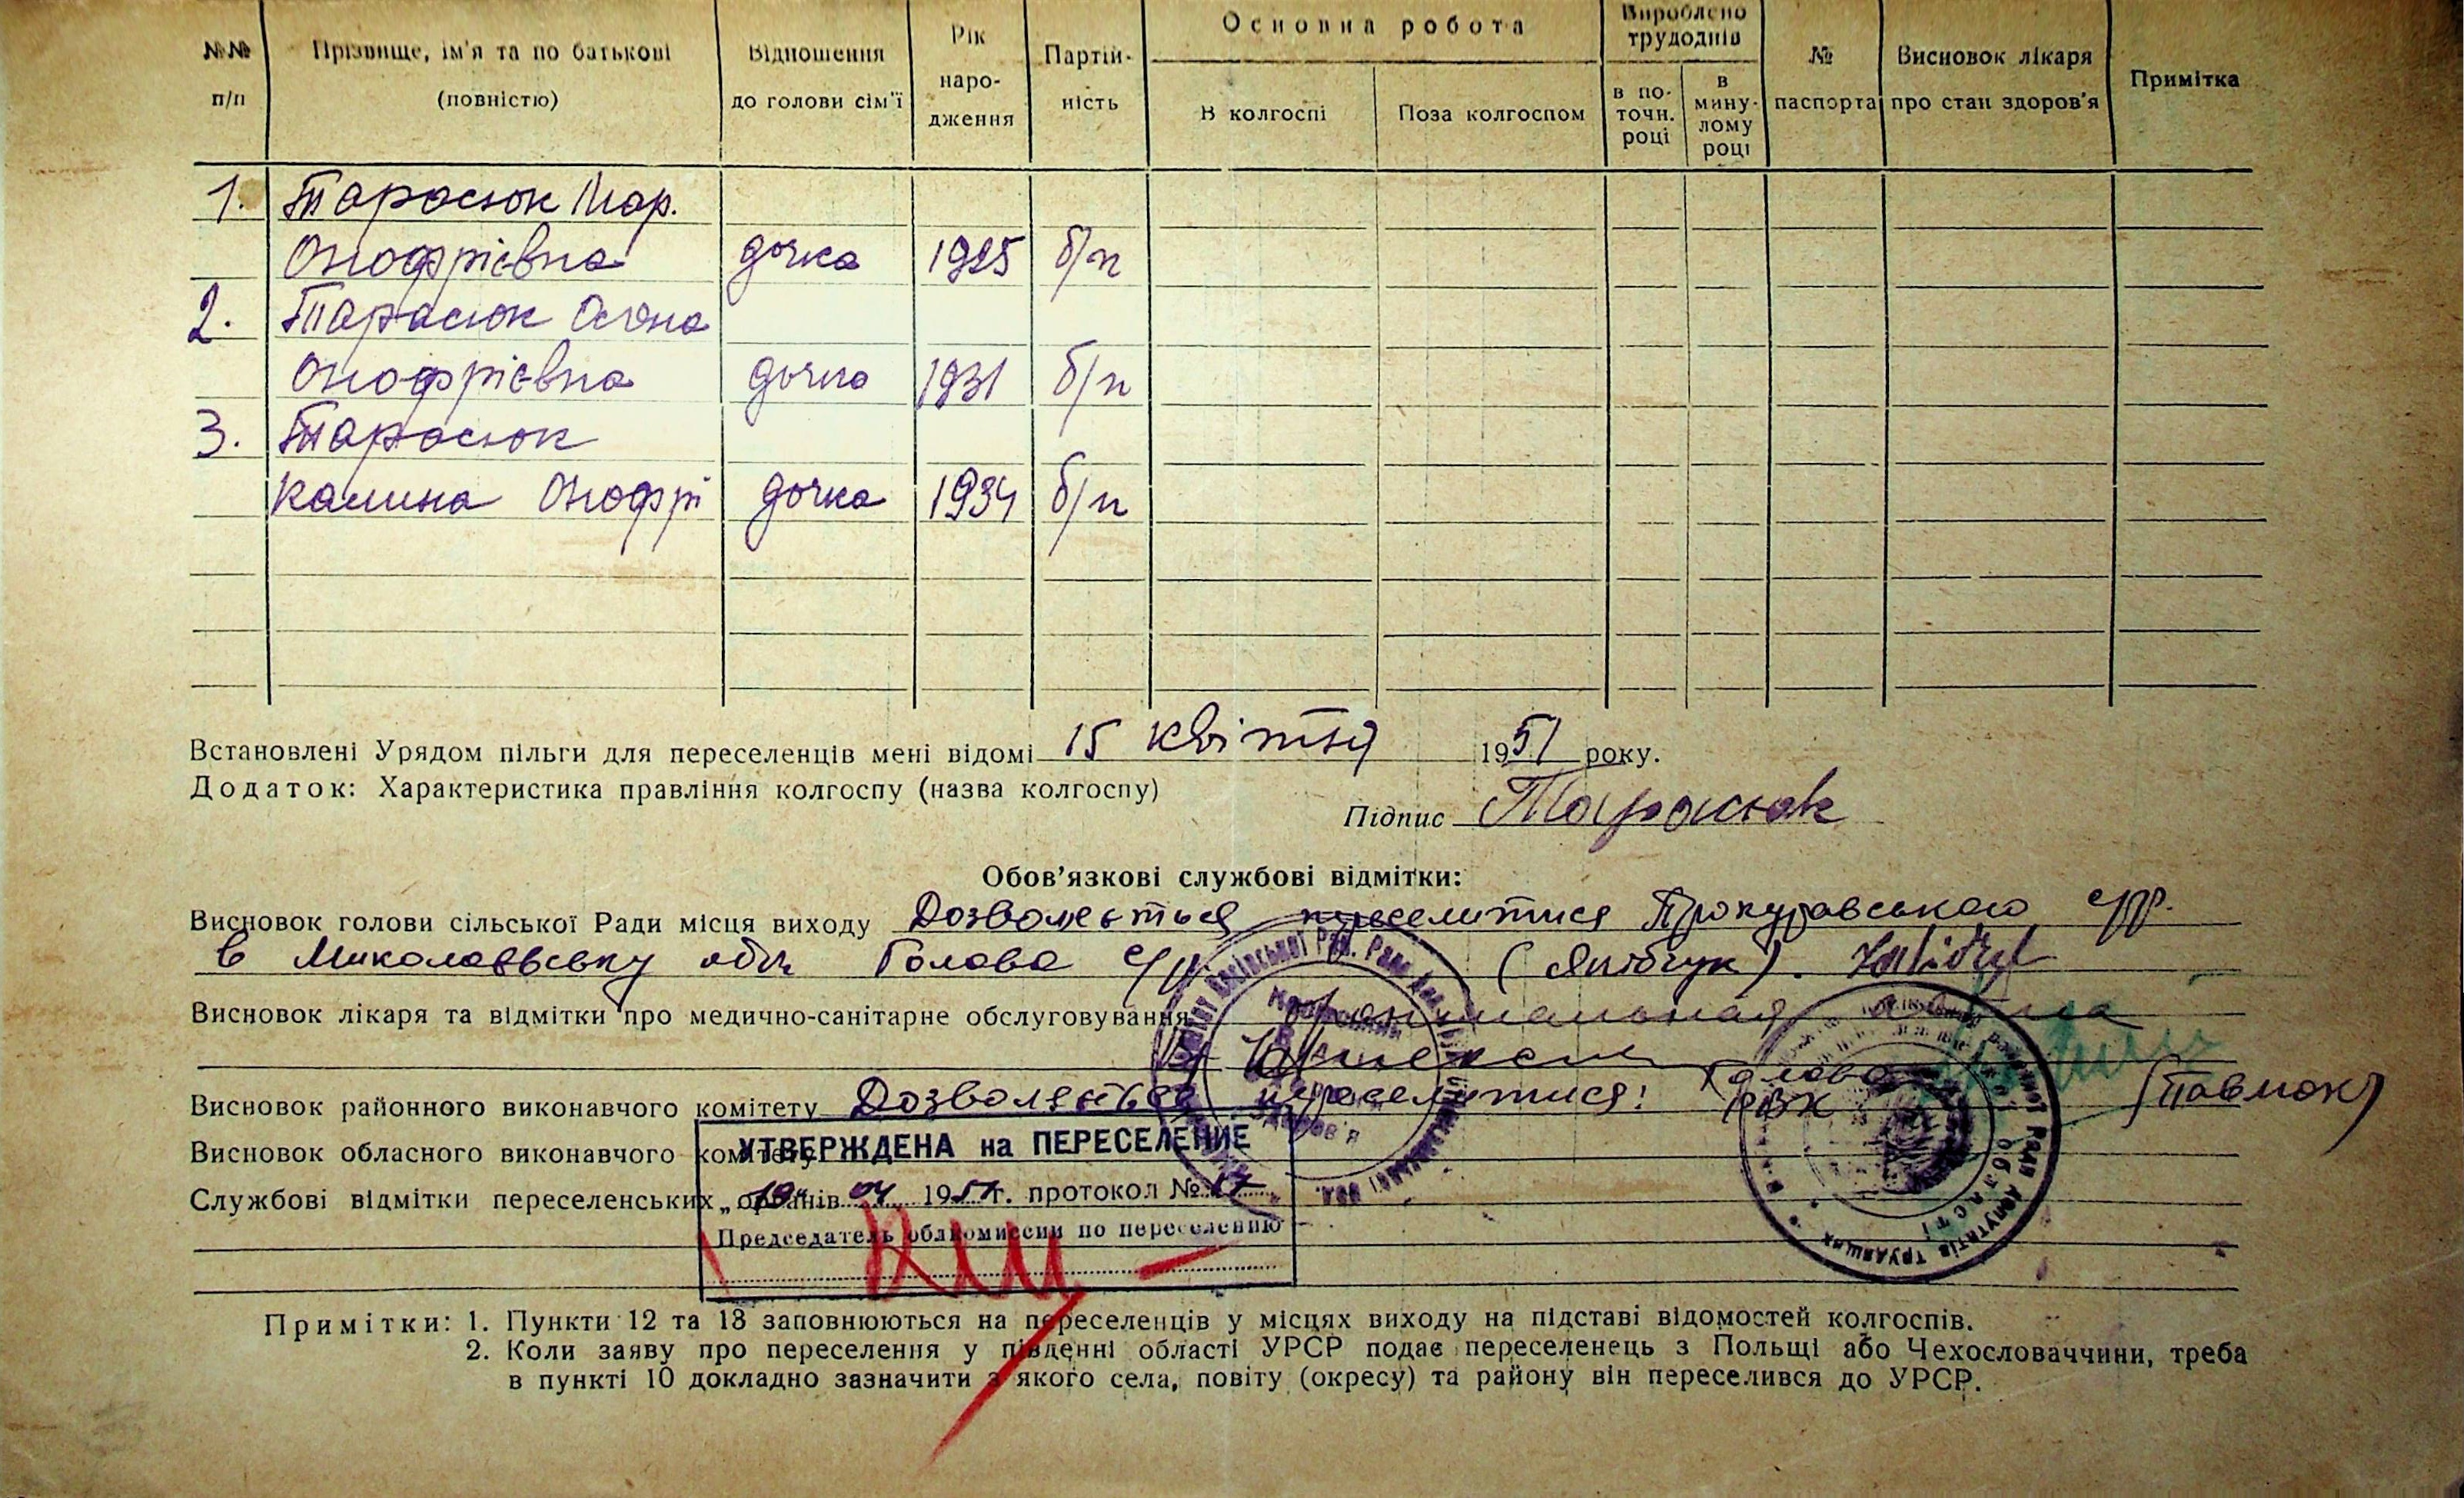 №№ п/п
Прізвище, ім'я та по батькові (повністю)
Відношення до голови сім'ї
Рік наро-
дження
Партій-
ність
Основна робота
В колгоспі
Поза колгоспом
Вироблено трудоднів
в по-
точн.
році
в
мину-
лому
році
№ паспорта
Висновок лікаря про стан здоров'я
Примітка
1. Тарасюк Мар.
Онофріевна дочка 1925 б/п
2. Тарасюк
Онофріевна дочка 1931 б/п
3. Тарасюк
Калина Онофрі дочка 1934 б/п
Встановлені Урядом пільги для переселенців мені відомі 15 квітня 1951 року.
Додаток: Характеристика правління колгоспу (назва колгоспу)
Підпис Тарасюк
Обов'язкові службові відмітки:
Висновок голови сільської Ради місця виходу Дозволяеться переселитися
в обл. Голова
Висновок лікаря та відмітки про медично-санітарне обслуговування
Висновок районного виконавчого комітету Дозволяеться переселитися! Голова РВК (Павлюк)
Висновок обласного виконавчого комітету
Службові відмітки переселенських органів
УТВЕРЖДЕНА на ПЕРЕСЕЛЕНИЕ
„19" 04 1951 г. протокол № 17
Председатель облкомиссии по переселению
Примітки: 1. Пункти 12 та 13 заповнюються на переселенців у місцях виходу на підставі відомостей колгоспів.
2. Коли заяву про переселення у південні області УРСР подає переселенець з Польщі або Чехословаччини, треба
в пункті 10 докладно зазначити з якого села, повіту (окресу) та району він переселився до УРСР.